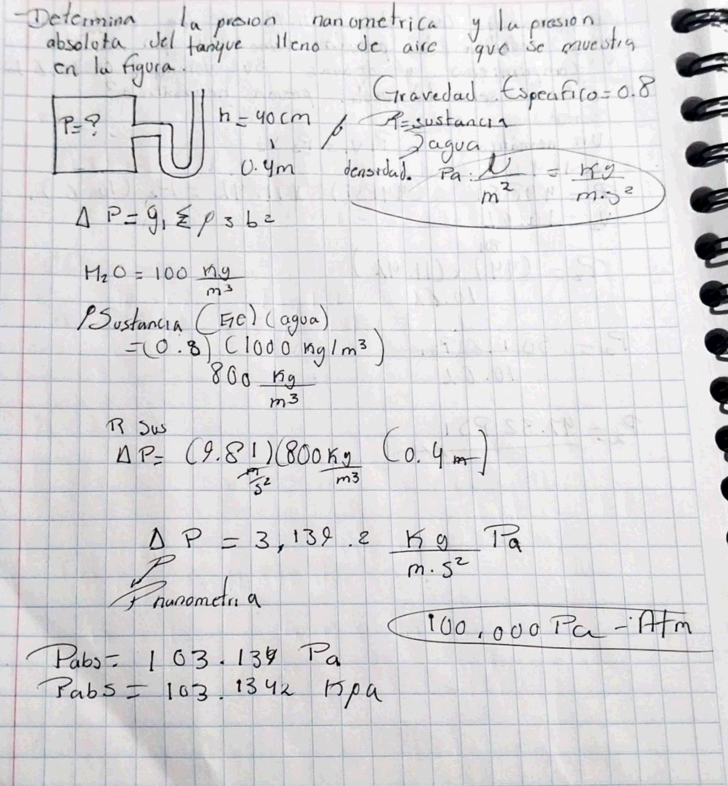 Determina la presion nanometrica y la presion
absoluta del tanque lleno de aire que se muestra
en la figura.
Gravedad Espesifico = 0.8
P=?
h = 40cm
0.4m
R=sustancia
agua
densidad.
Pa: N/m² = Kg/m·s²
Δ P = g, Σ ρ 3 b =
H₂O = 100 Kg/m³
ρSustancia (GE) (agua)
= (0.8) (1000 Kg/m³)
800 Kg/m³
R sus
Δ P = (9.81 m/s²)(800 Kg/m³ (0.4 m)
Δ P = 3,139.2 Kg/m·s² Pa
P nanometria
100,000 Pa - Atm
Pabs = 103.139 Pa
Pabs = 103.1342 Kpa